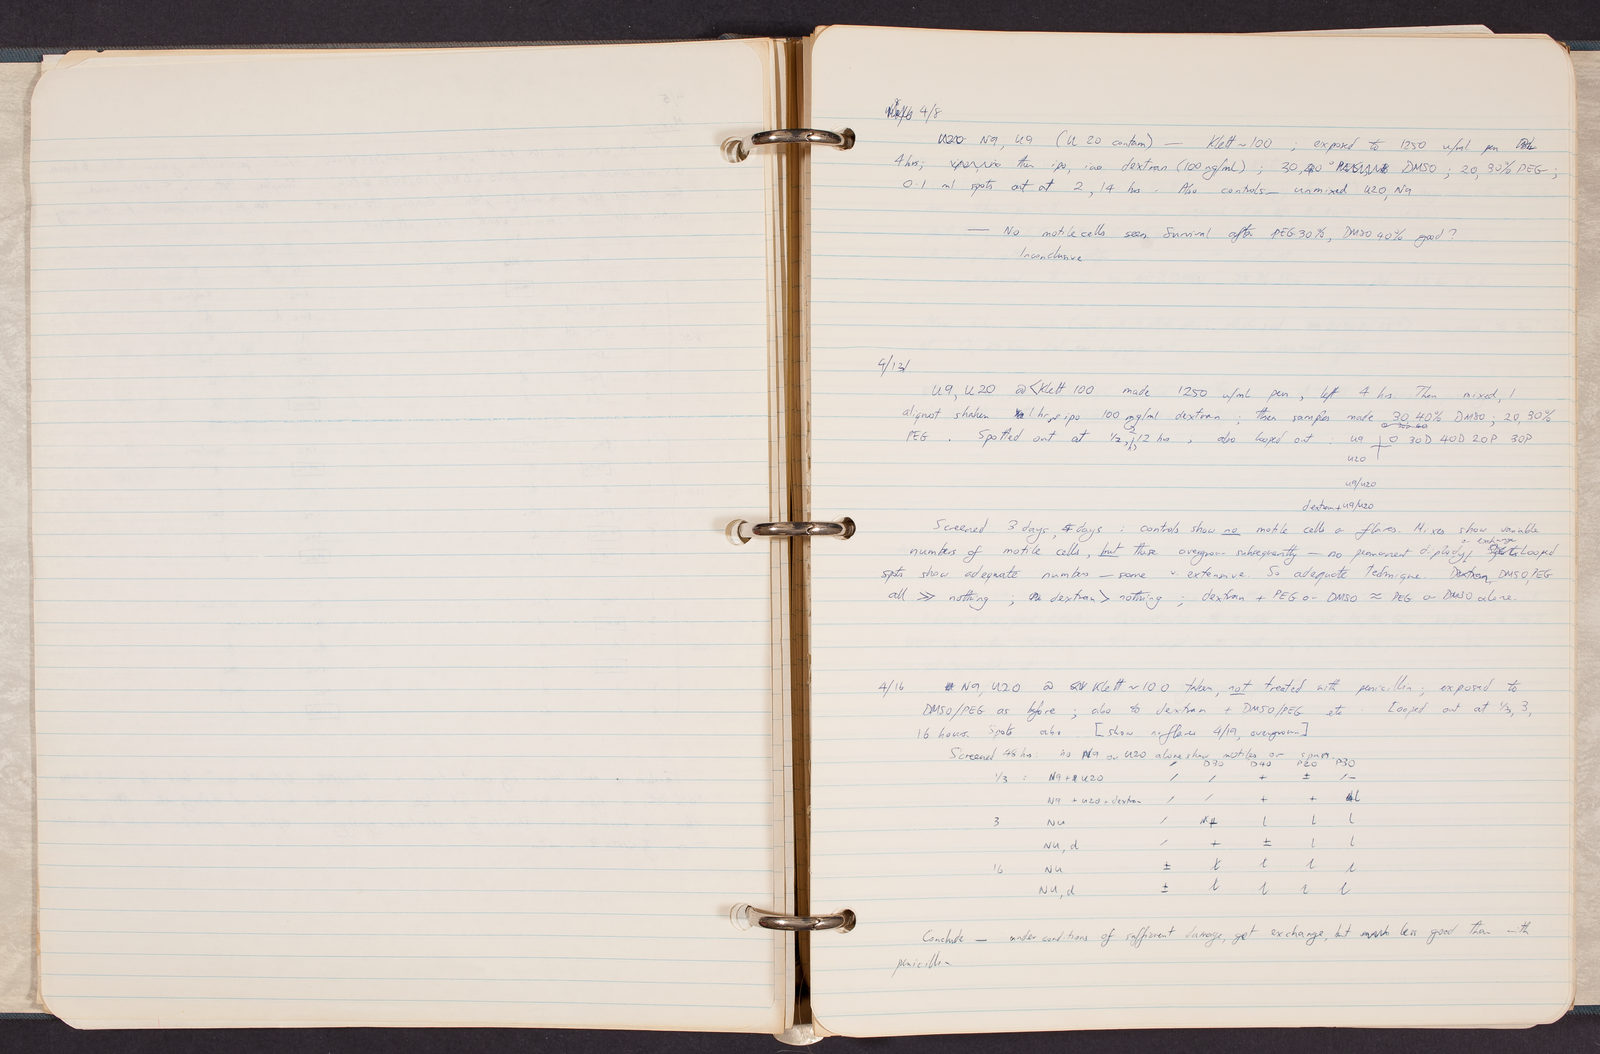 4/8
N9, U9 (U 20 contam) — Klett ~ 100 ; exposed to 1250 u/ml pen
4 hrs; then ipo, dextran (100 ng/ml) ; 30, 40 DMSO ; 20, 30% PEG ;
0.1 ml spots out at 2, 14 hrs. Also controls — unmixed U20, N9
— No motile cells seen. Survival after PEG 30%, DMSO 40% good?
Inconclusive
4/13
U9, U20 @ < Klett 100 made 1250 u/ml pen, left 4 hrs. Then mixed, 1
aliquot shaken 1 hr ipo 100 mg/ml dextran ; then samples made 30, 40% DMSO ; 20, 30%
PEG . Spotted out at 1/2, 2, 12 hrs , also looped out : U9 0 30D 40D 20P 30P
U20
U9/U20
dextran + U9/U20
Screened 3 days, days : controls show no motile cells or flares. Mixes show variable
numbers of motile cells, but these overgrow subsequently — no permanent diploidy / exchange Looped
spots show adequate numbers — some v. extensive. So adequate technique. Dextran, DMSO, PEG
all >> nothing ; dextran > nothing ; dextran + PEG or DMSO ≈ PEG or DMSO alone.
4/16 N9, U20 @ Klett ~ 100 taken, not treated with penicillin ; exposed to
DMSO/PEG as before ; also to dextran + DMSO/PEG etc . Looped out at 1/3, 3,
16 hours. Spots also . [show no flares 4/19, overgrown]
Screened 48 hrs : no N9 or U20 alone show motiles or
/ D30 D40 P20 P30
1/3 : N9 + U20 / / + ± /-
N9 + U20 + dextran / / + + l
3 NU / + l l l
NU, d / + ± l l
16 NU ± l l l l
NU, d ± l l l l
Conclude — under conditions of sufficient damage, get exchange, but less good than with
penicillin